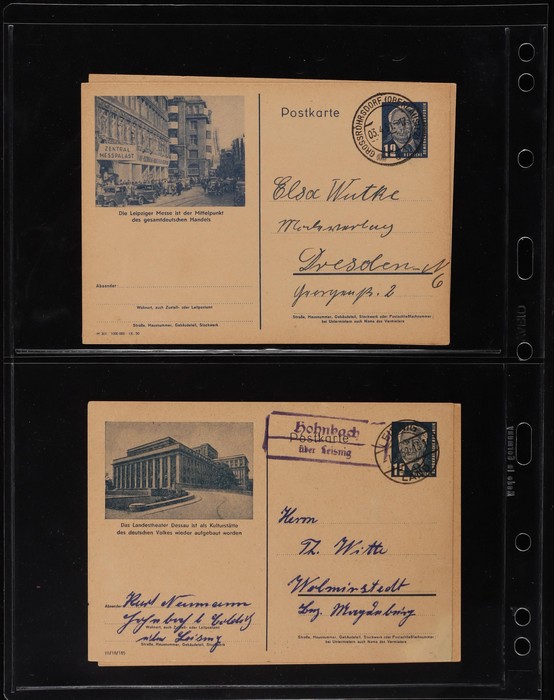 ZENTRAL
MESSPALAST
Die Leipziger Messe ist der Mittelpunkt
des gesamtdeutschen Handels
Absender:
Wohnort, auch Zustell- oder Leitpostamt
Straße, Hausnummer, Gebäudeteil, Stockwerk
Postkarte
GROSSRÖHRSDORF
12
Elsa Wutke
Dresden N
6
Georgenstr. 2
Straße, Hausnummer, Gebäudeteil, Stockwerk oder Postschließfachnummer;
bei Untermietern auch Name des Vermieters
Das Landestheater Dessau ist als Kulturstätte
des deutschen Volkes wieder aufgebaut worden
Absender:
Kurt Neumann
Hohnbach b. Colditz
Wohnort, auch Zustell- oder Leitpostamt
über Leisnig
Straße, Hausnummer, Gebäudeteil, Stockwerk
Hohnbach
über Leisnig
Postkarte
12
Herrn
Th. Witte
Wolmirstedt
Bez. Magdeburg
Straße, Hausnummer, Gebäudeteil, Stockwerk oder Postschließfachnummer;
bei Untermietern auch Name des Vermieters
Made in Germany